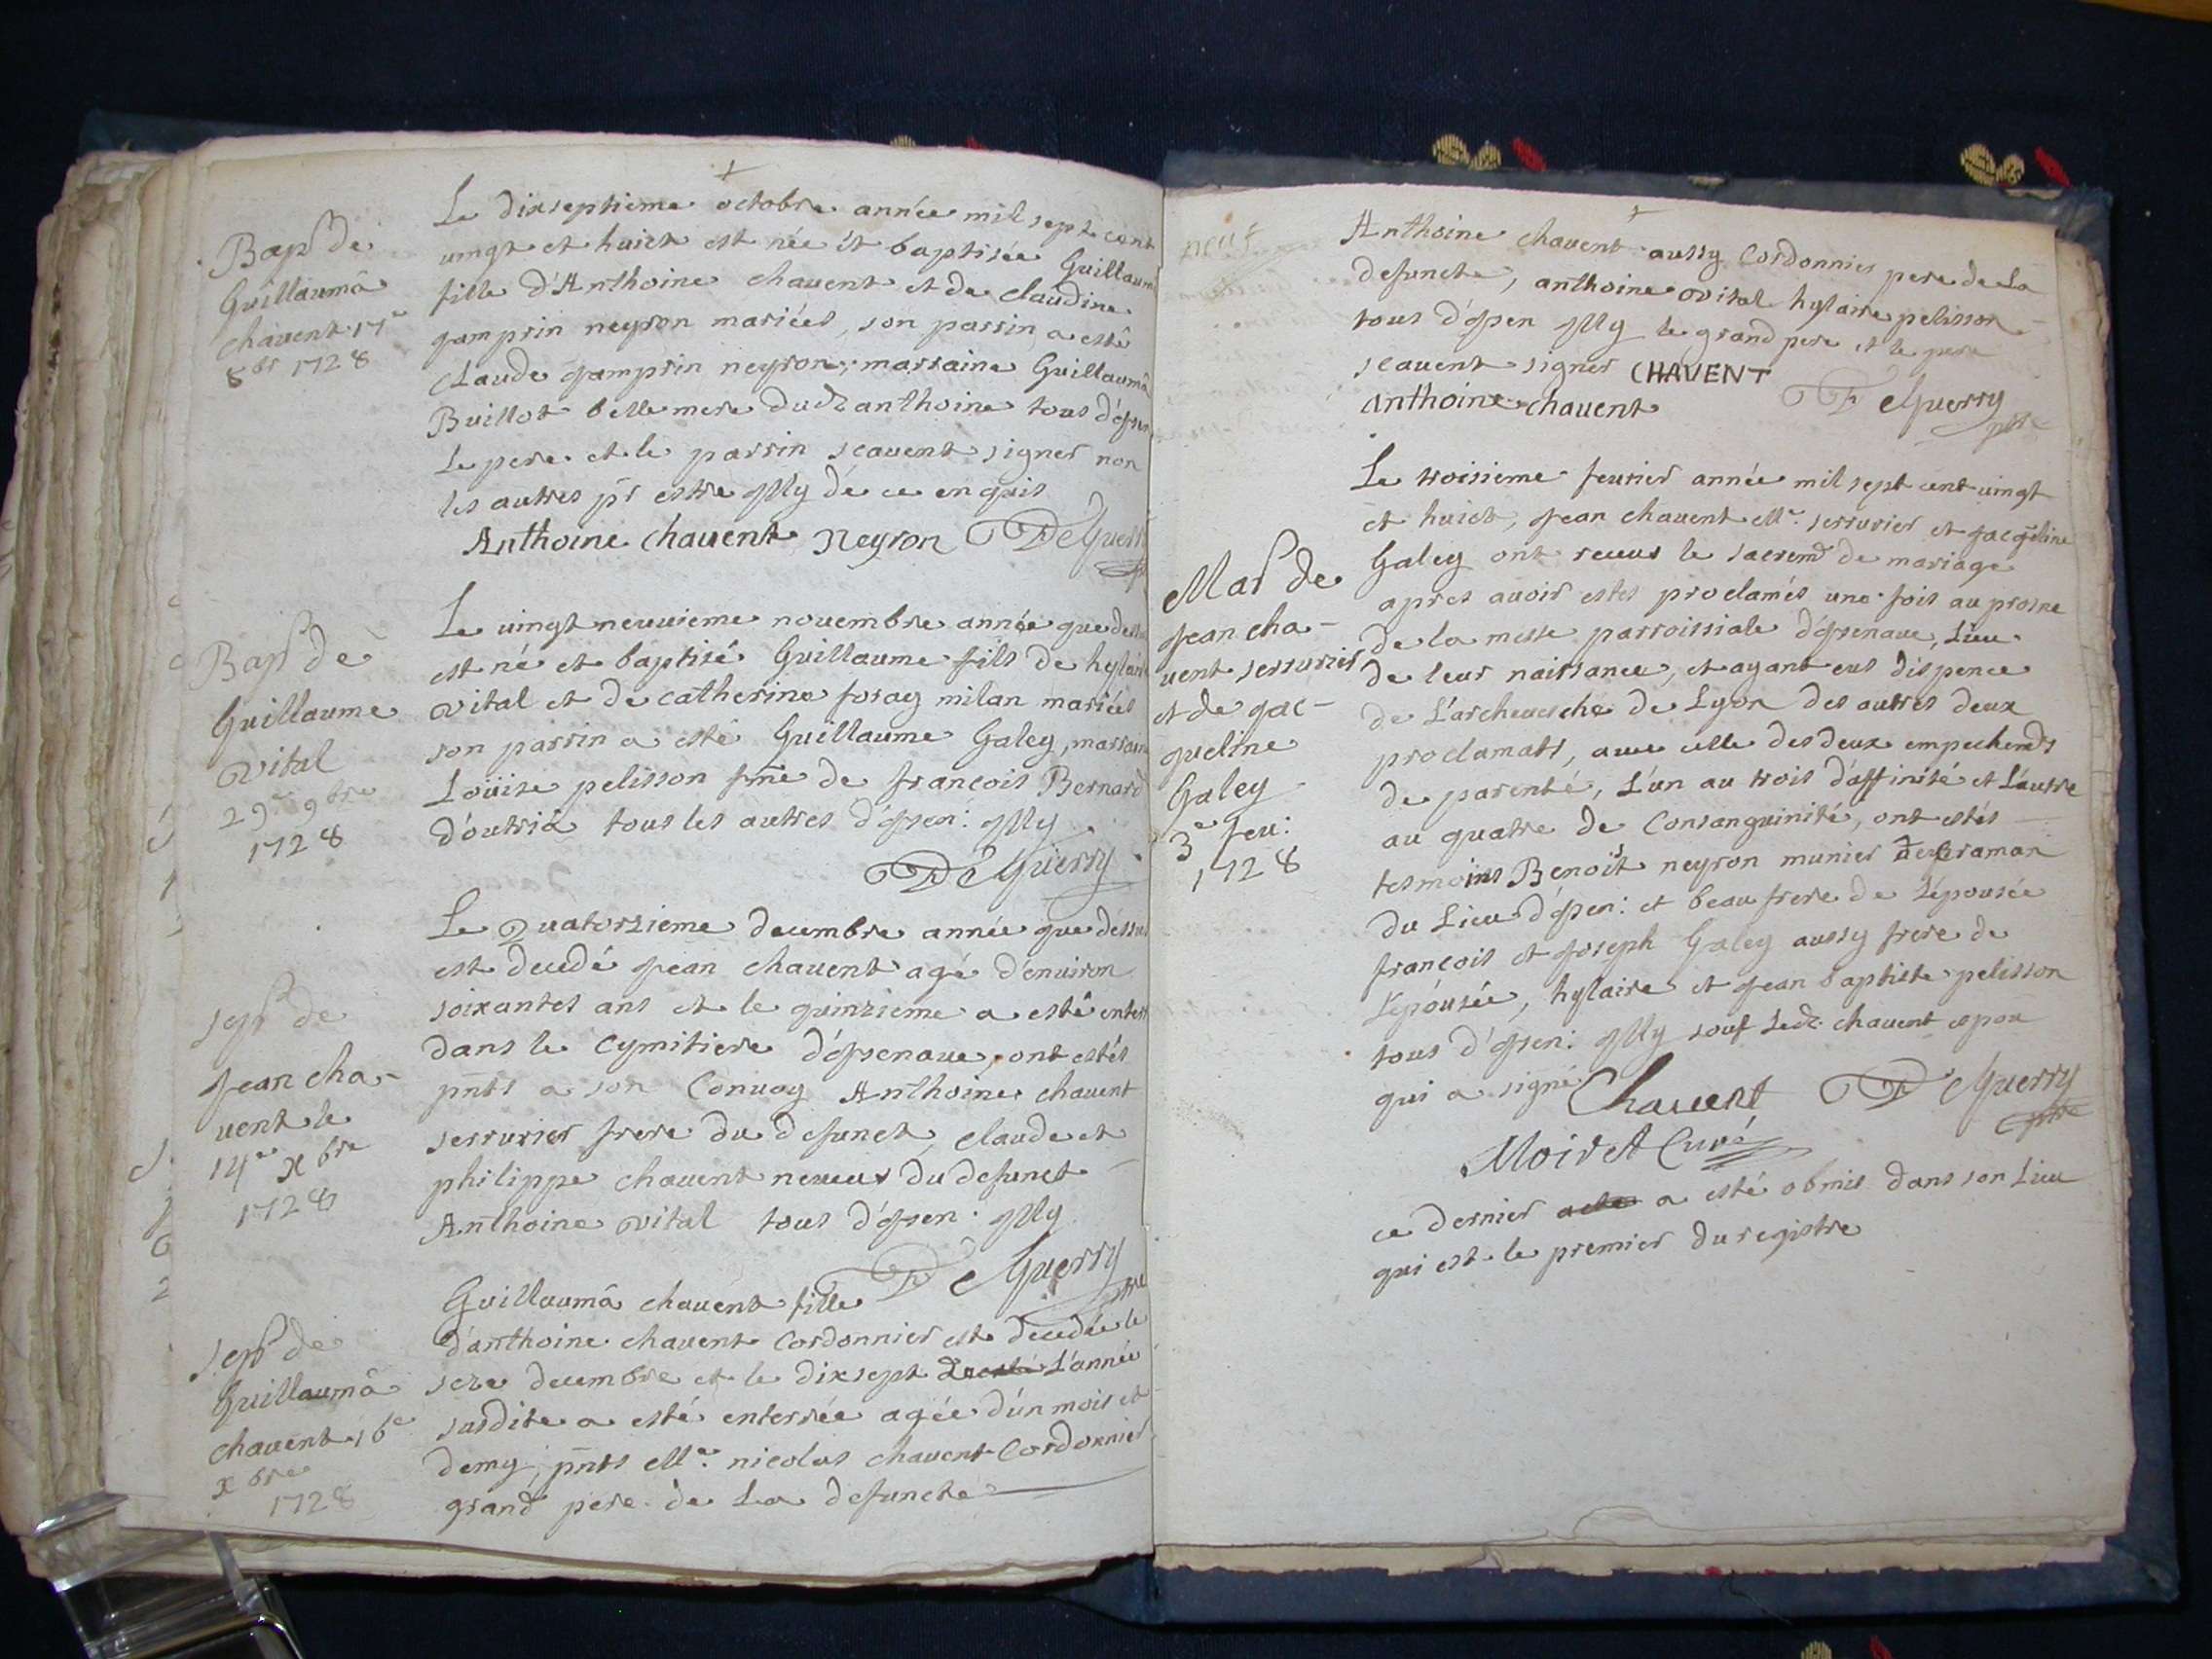 Bap de
Guillaumâ
chavent 17e
8br 1728
Le dixseptieme octobre année mil sept cent
vingt et huict est née et baptisée Guillaum
fille d'Anthoine chavent et de claudine
jamprin neyron mariées, son parrin a esté
Claude jamprin neyron, marraine Guillaumâ
Buillot belle mere dudt anthoine tous d'
Le pere et le parrin scavent signer non
les autres pr estre illy de ce enquis
Anthoine chavent Neyron DeGuerr
Bap de
Guillaume
Vital
29e 9bre
1728
Le vingt neuvieme novembre année que dess
est né et baptisé Guillaume fils de hylair
vital et de catherine foray milan mariées
son parrin a esté Guillaume Galey, marrain
Loüise pelisson fme de francois Bernard
d'outria tous les autres d'ysen: illy
DeGuerry
sep de
Jean cha-
vent le
14e xbre
1728
Le Quatorzieme decembre année que dessu
est decedé Jean chavent agé d'environ
soixantes ans et le quinzieme a esté enterr
dans le Cymitiere d'ysenave, ont estés
pnts a son Convoy Anthoine chavent
serrurier frere du defunct, claude et
philippe chavent neveus du defunct
Anthoine vital tous d'ysen. illy
DeGuerry
ptre
sep de
Guillaumâ
chavent 16e
xbre
1728
Guillaumâ chavent fille
d'anthoine chavent Cordonnier est decedée le
seze decembre et le dixsept L'année
susdite a esté enterrée agée d'un mois et
demy, pnts Me. nicolas chavent Cordonnier
grand pere de La defuncte
neuf
Anthoine chavent aussy Cordonnier pere de La
defuncte, anthoine vital hylaire pelisson
tous d'ysen illy le grand pere et le pere
scavent signer CHAVENT
Anthoine chavent DeGuerry
ptre
Mar de
Jean cha-
vent serrurier
et de jac-
queline
Galey
3e feu:
1728
Le troisieme feurier année mil sept cent vingt
et huict, Jean chavent Me. serrurier et jacqline
Galey ont receus le sacremt de mariage
apres avoir estes proclamés une fois au prosne
de la messe parroissiale d'ysenave, Lieu
de leur naissance, et ayant eus dispence
de L'archevesché de Lyon des autres deux
proclamats, avec celle des deux empechemts
de parenté, L'un au trois d'affinité et L'autre
au quatre de Consanguinité, ont estés
tesmoins Benoist neyron munier de Craman
du Lieu d'ysen: et beau frere de L'épousée
francois et Joseph Galey aussy frere de
L'épousée, hylaire et Jean baptiste pelisson
tous d'ysen: illy sauf Ledt. chavent epou
qui a signé Chavent DeGuerry
ptre
Moiret Curé
ce dernier acte a esté obmis dans son Lieu
qui est le premier du registre